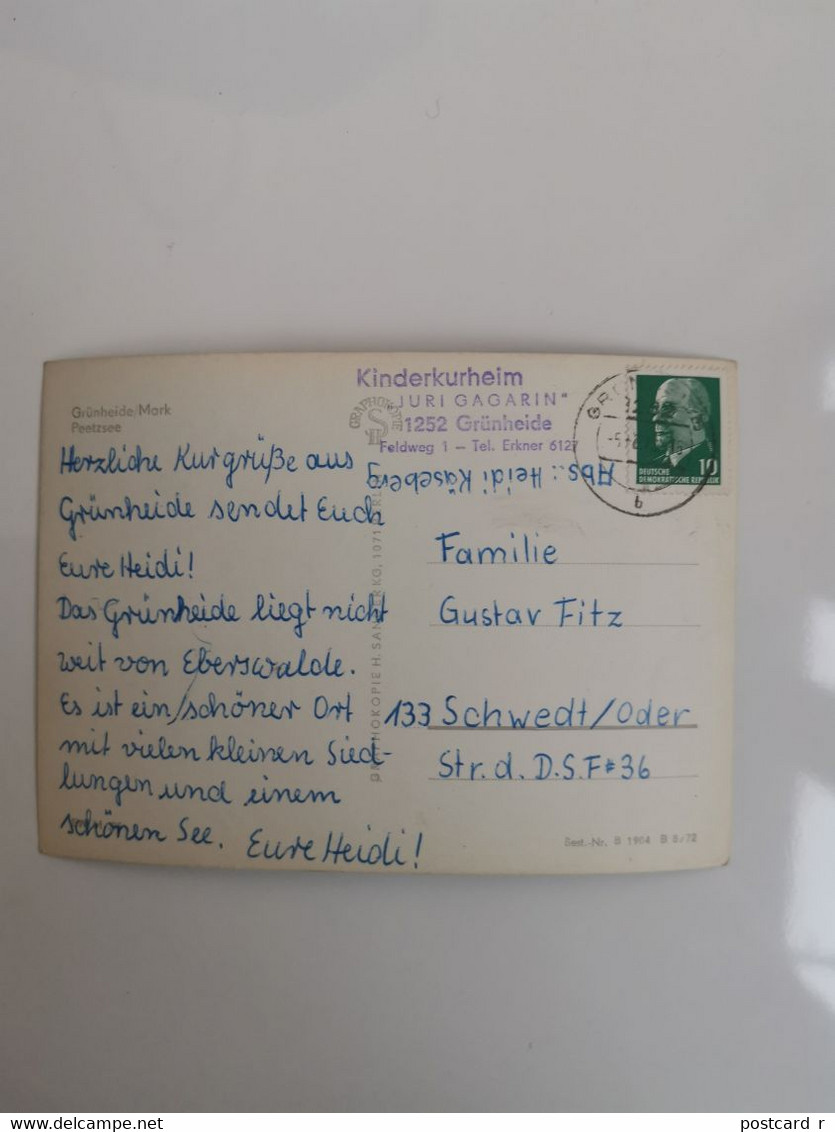 Grünheide/Mark
Peetzsee
Herzliche Kurgrüße aus
Grünheide sendet Euch
Eure Heidi!
Das Grünheide liegt nicht
weit von Eberswalde.
Es ist ein schöner Ort
mit vielen kleinen Sied-
lungen und einem
schönen See. Eure Heidi!
Kinderkurheim
"JURI GAGARIN"
1252 Grünheide
Feldweg 1 – Tel. Erkner 6127
Abs.: Heidi Käseberg
DEUTSCHE
DEMOKRATISCHE REPUBLIK
10
b
Familie
Gustav Fitz
133 Schwedt/Oder
Str. d. D.S.F. 36
Best.-Nr. B 1904 B 8/72
www.delcampe.net
postcard_r